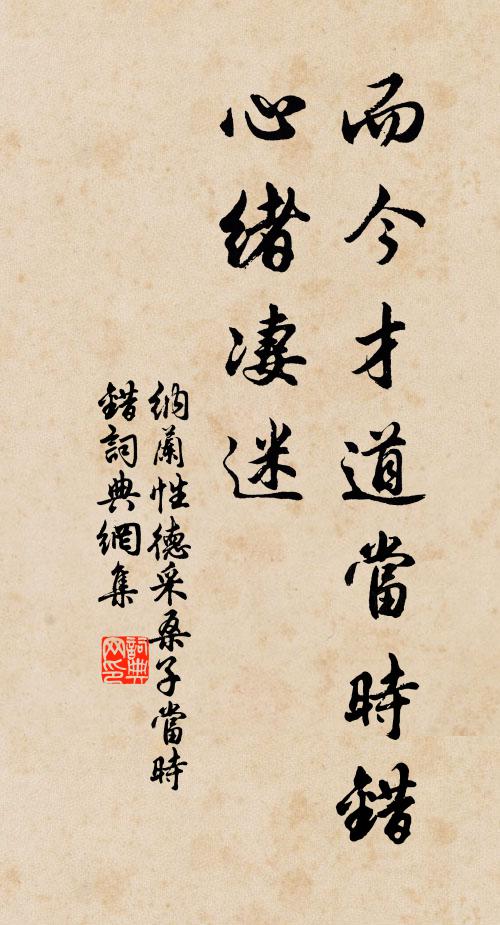 而今才道當時錯
心緒凄迷
納蘭性德采桑子當時
錯詞典網集
詞典
网印